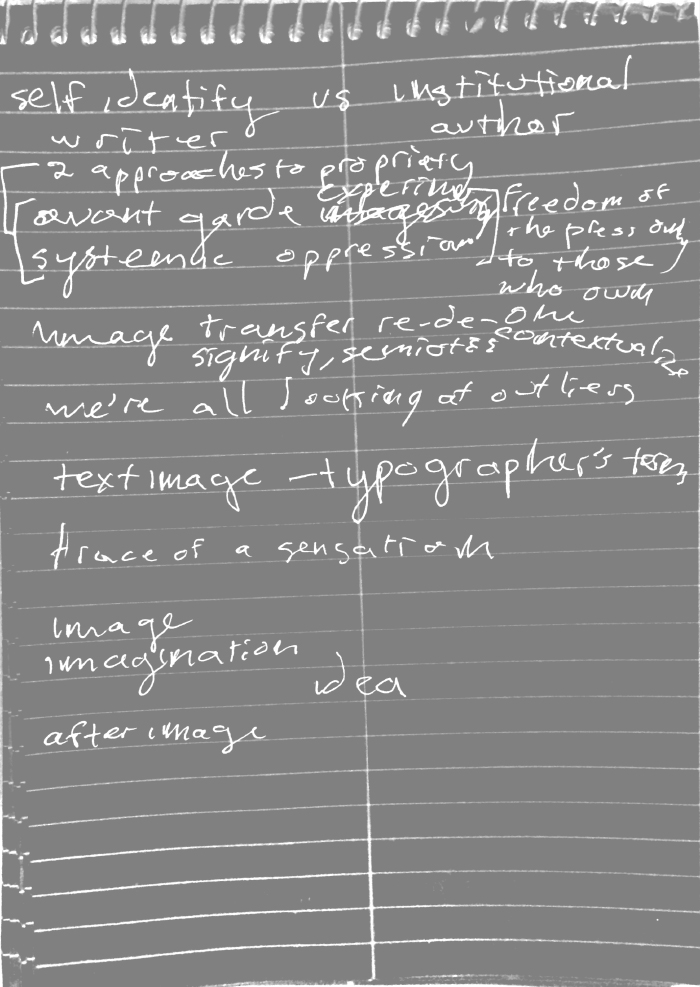 self identify vs institutional
writer author
2 approaches to propriety
avant garde experim
systemic oppression
freedom of
the press only
to those
who own
one
image transfer re-de-contextualize
signify, semiotics
we're all looking at outliers
text image - typographer's term
trace of a sensation
image
imagination
idea
after image